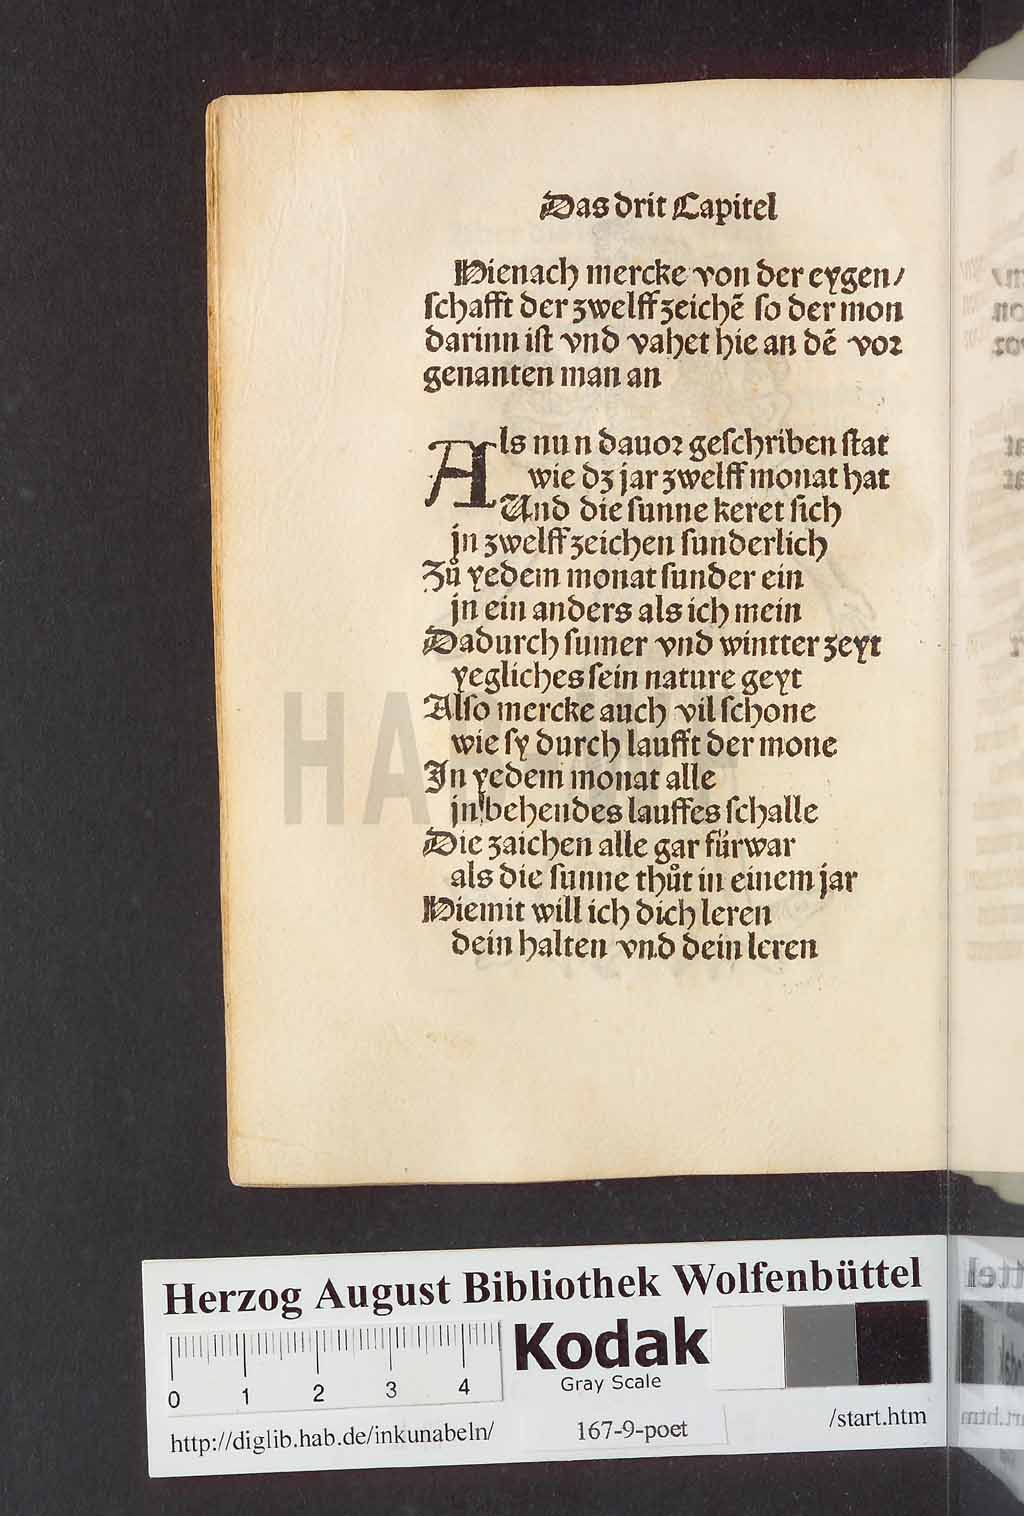 Das drit Capitel
Hienach mercke von der eygen/
schafft der zwelff zeichẽ so der mon
darinn ist vnd vahet hie an dẽ vor
genanten man an
Als nun dauor geschriben stat
wie dz jar zwelff monat hat
Und die sunne keret sich
jn zwelff zeichen sunderlich
Zů yedem monat sunder ein
jn ein anders als ich mein
Dadurch sumer vnd wintter zeyt
yegliches sein nature geyt
Also mercke auch vil schone
wie sy durch laufft der mone
In yedem monat alle
jn behendes lauffes schalle
Die zaichen alle gar fürwar
als die sunne thůt in einem jar
Hiemit will ich dich leren
dein halten vnd dein leren
HAB
Herzog August Bibliothek Wolfenbüttel
0 1 2 3 4
Kodak
Gray Scale
http://diglib.hab.de/inkunabeln/ 167-9-poet /start.htm